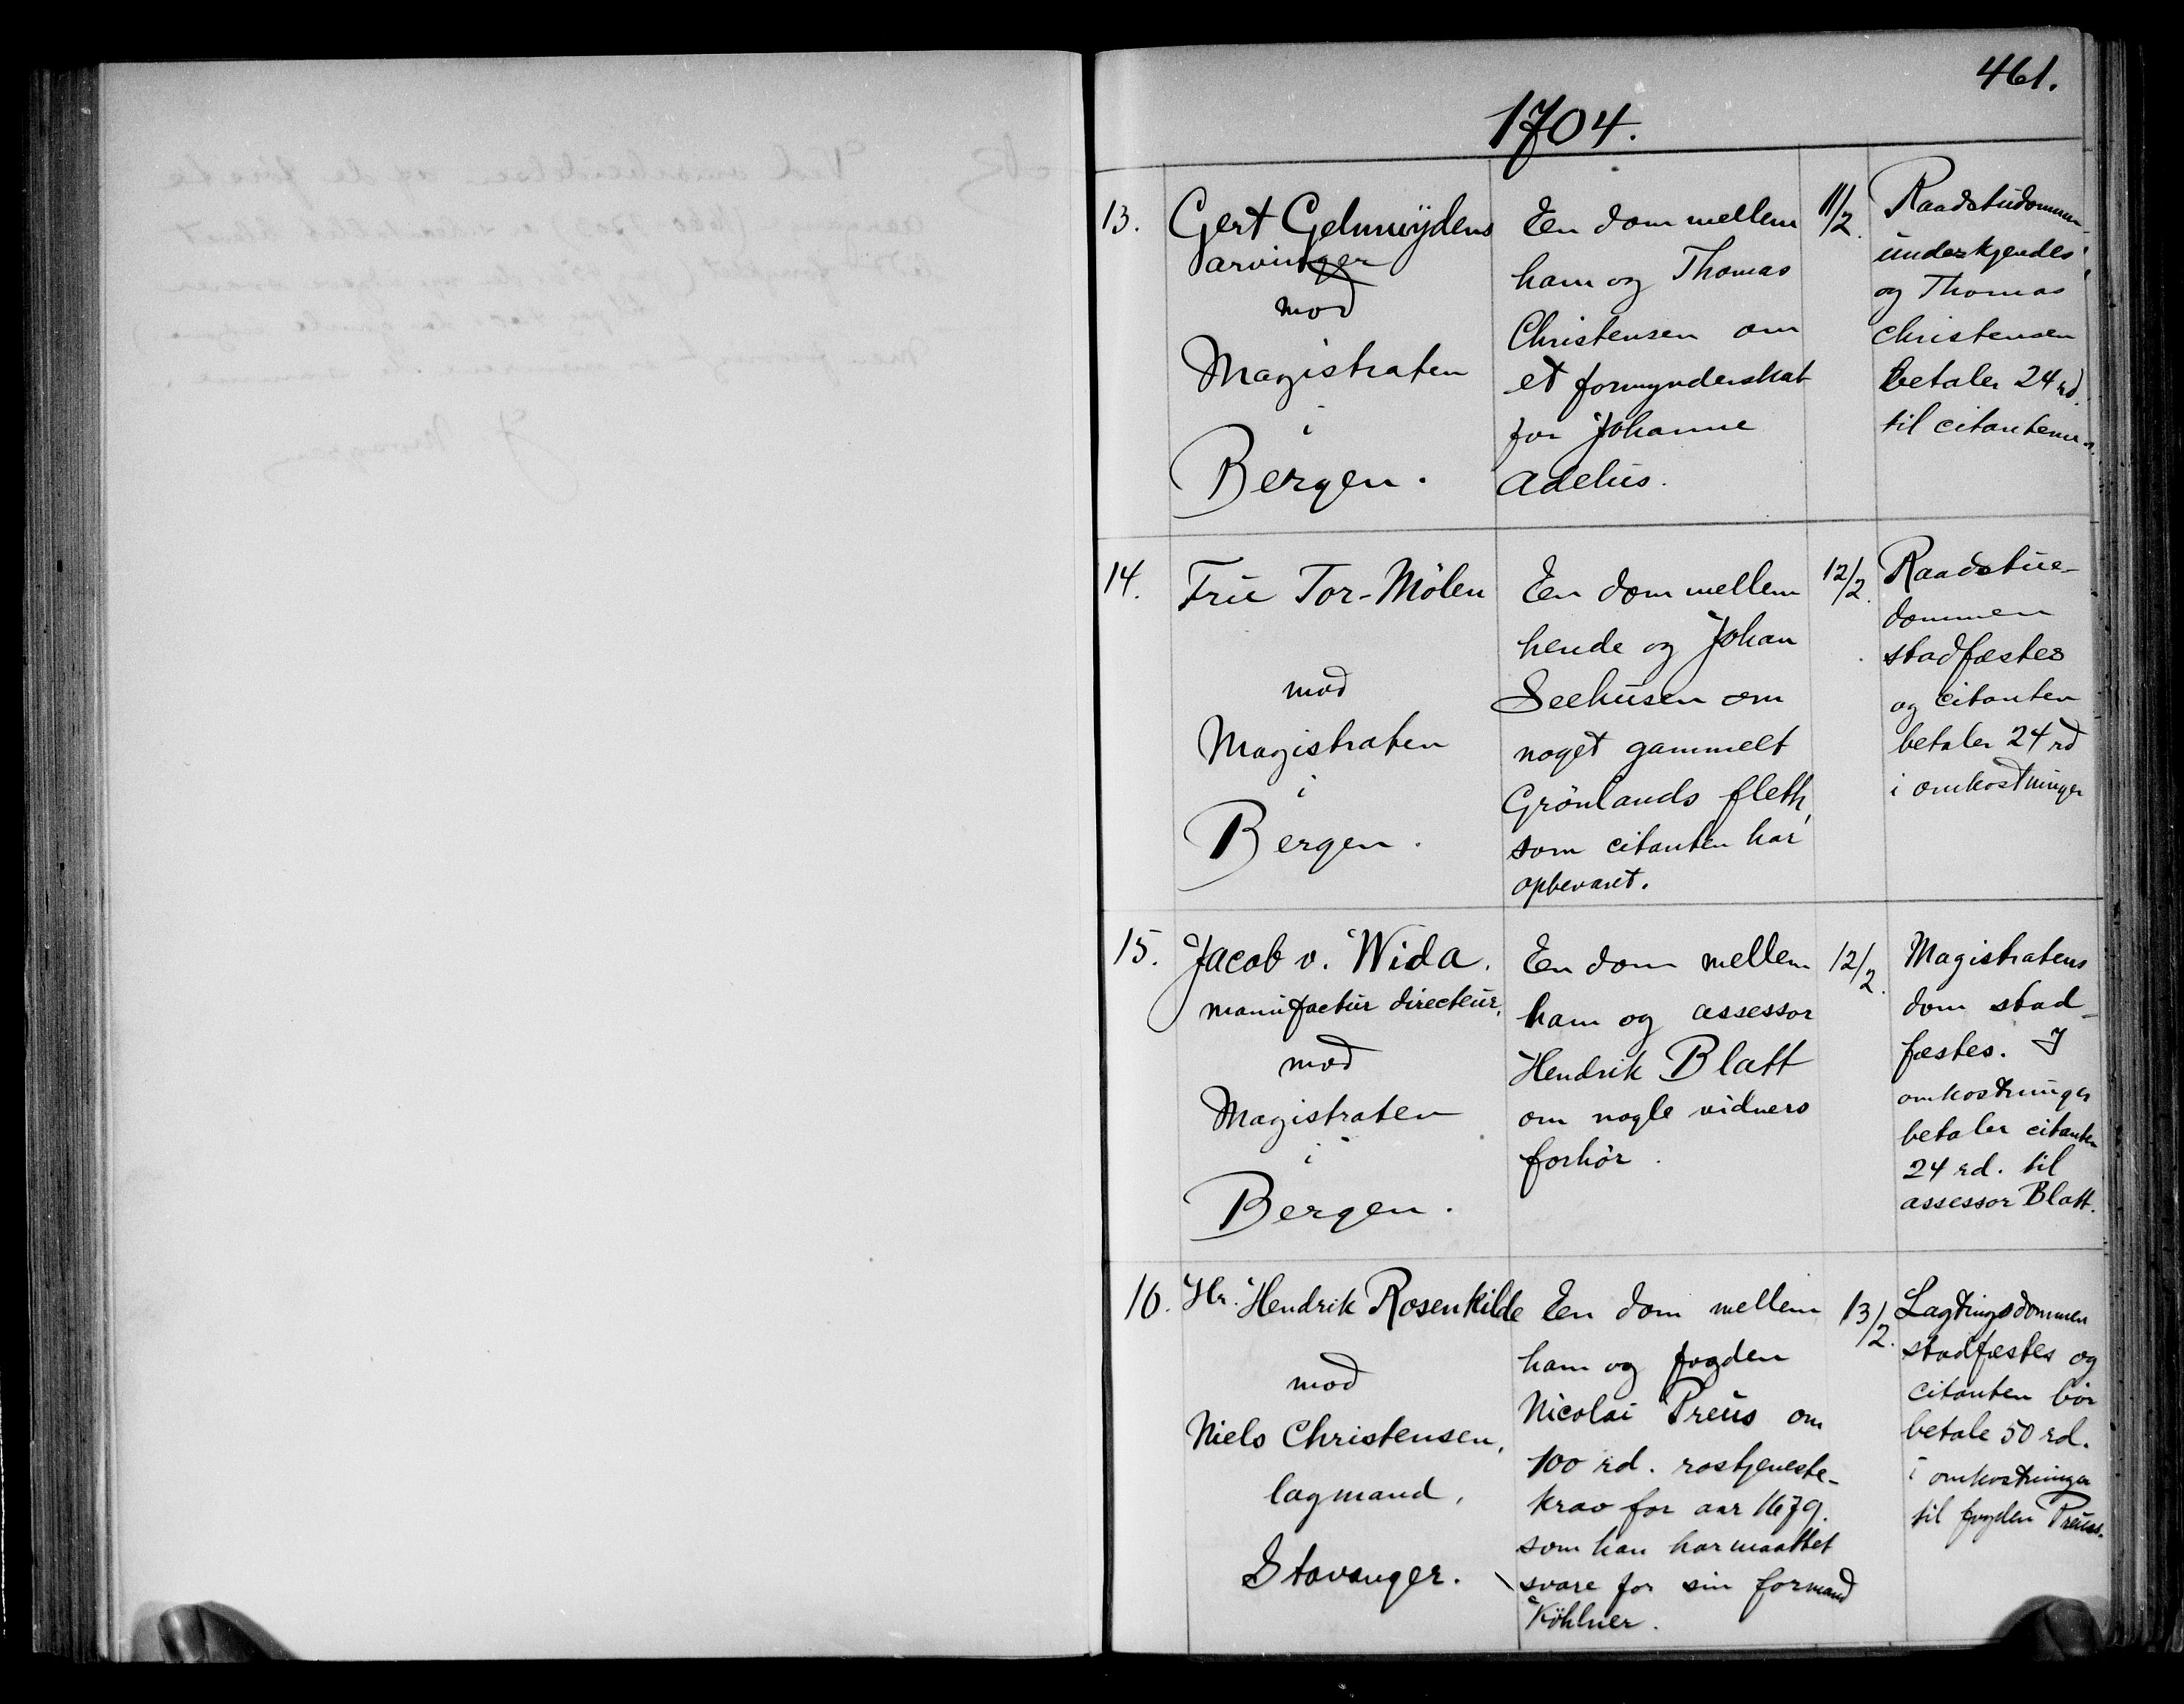 461.
1704.
13.
Gert Gelmuÿdens
arvinger
mod
Magistraten
i
Bergen.
Een dom mellem
ham og Thomas
Christensen om
et formynderskab
for Johanne
Adelus.
11/2.
Raadstudommen
underkjendes,
og Thomas
Christensen
betaler 24 rd.
til citanterne.
14.
Frue Tor-Mölen
mod
Magistraten
i
Bergen.
Een dom mellem
hende og Johan
Seehusen om
noget gammelt
Grönlands fleth,
som citanten har
opbevaret.
12/2.
Raadstue-
dommen
stadfæstes
og citanten
betaler 24 rd
i omkostninger
15.
Jacob v. Wida.
manufactur directeur,
mod
Magistraten
i
Bergen.
Een dom mellem
ham og assessor
Hendrik Blatt
om nogle vidners
forhör.
12/2.
Magistratens
dom stad-
fæstes. I
omkostninger
betaler citanten
24 rd. til
assessor Blatt.
16.
Hr. Hendrik Rosenkilde
mod
Niels Christensen,
lagmand,
Stavanger.
Een dom mellem
ham og fogden
Nicolai Preus om
100 rd. rostjeneste-
krav for aar 1679.
som han har maattet
svare for sin formand
Köhlner.
13/2.
Lagtingsdommen
stadfæstes og
citanten bör
betale 50 rd.
i omkostninger
til fogden Preus.